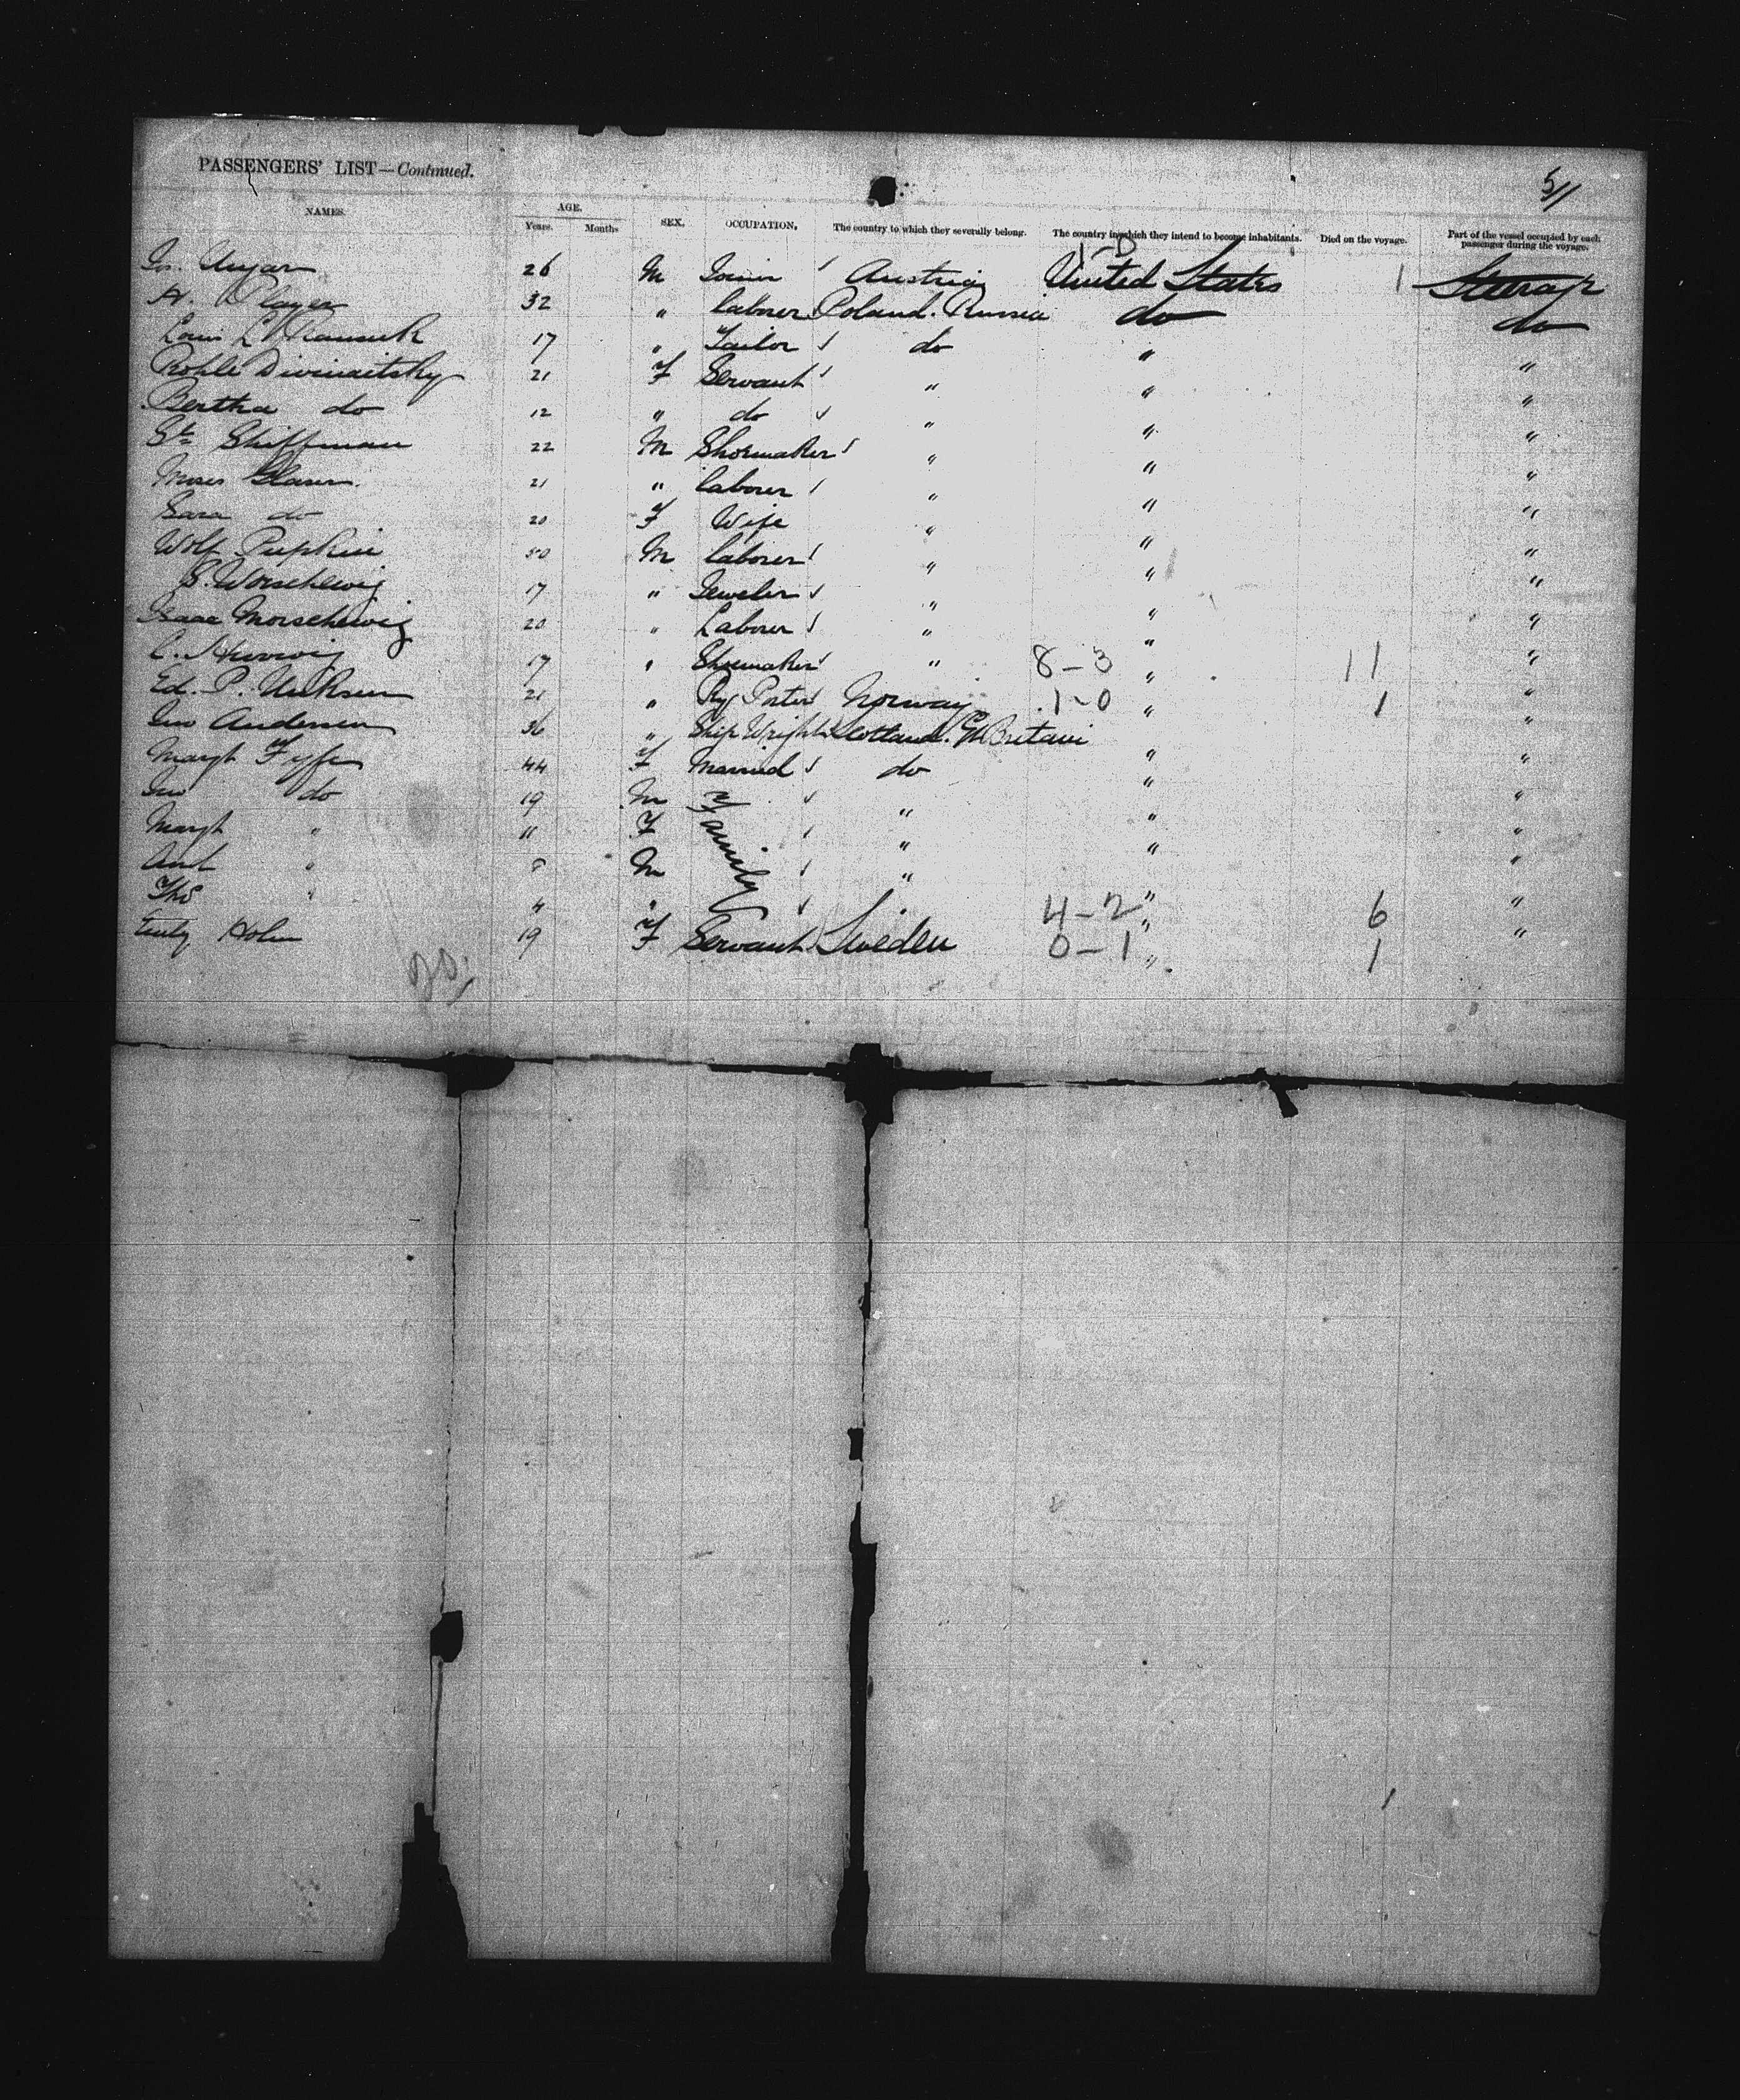 PASSENGERS' LIST—Continued.
5/1
NAMES. AGE. Years. Months SEX. OCCUPATION. The country to which they severally belong. The country in which they intend to become inhabitants. Died on the voyage. Part of the vessel occupied by each passenger during the voyage.
1-0
26 M Joiner Austria United States 1 Steerage
H. Player 32 " Laborer Poland. Russia do do
Louis 17 " Tailor do " "
21 F Servant " " "
Bertha do 12 " do " " "
Shiffman 22 M Shoemaker " " "
Moses Glaser. 21 " Laborer " " "
Sara do 20 F Wife " " "
Wolf Pupkin 50 M Laborer " " "
S. Worschewig 17 " Jeweler " " "
Isaac Morschewig 20 " Laborer " " "
C. 17 " Shoemaker " 8-3 " 11 "
Ed. P. 21 " Ry Porter Norway 1-0 " 1 "
Jno Andersen 36 " Ship Wright Scotland. Gt Britain "
Margt Fyfe 44 F Married do " "
Jno do 19 M Family " " "
Margt " 11 F " " "
" 8 M " " "
Thos " 4 " 4-2 " 6 "
Holm 19 F Servant Sweden 0-1 " 1 "